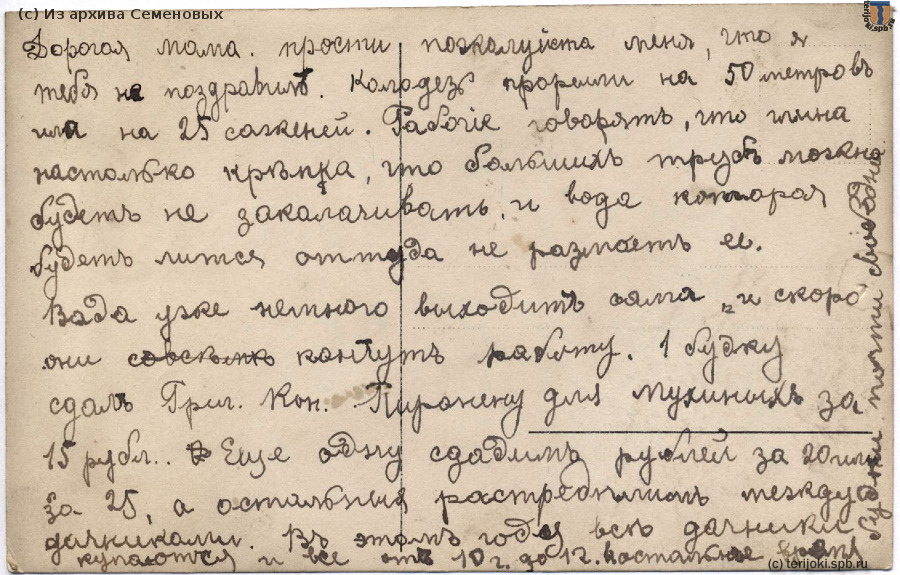 (c) Из архива Семеновых
terijoki.spb.ru
Дорогая мама. прости пожалуйста меня, что я
тебя не поздравилъ. Колодезь прорыли на 50 метровъ
или на 25 саженей. Рабочіе говорятъ, что глина
настолько крѣпка, что большихъ трубъ можно
будетъ не заколачивать, и вода которая
будетъ литься оттуда не размоетъ ее.
Вада уже немного выходитъ сама и скоро
они совсѣмъ кончутъ работу. 1 будку
сдалъ Григ. Кон. Пиронену для Мухиныхъ за
15 рубл.. Еще одну сдадимъ рублей за 20 или
за 25, а остальныя растредѣлимъ между
дачниками. Въ этомъ году всѣ дачники
купаются и все отъ 10 г. до 12. Въ остальное время
будки почти свободны
(c) terijoki.spb.ru